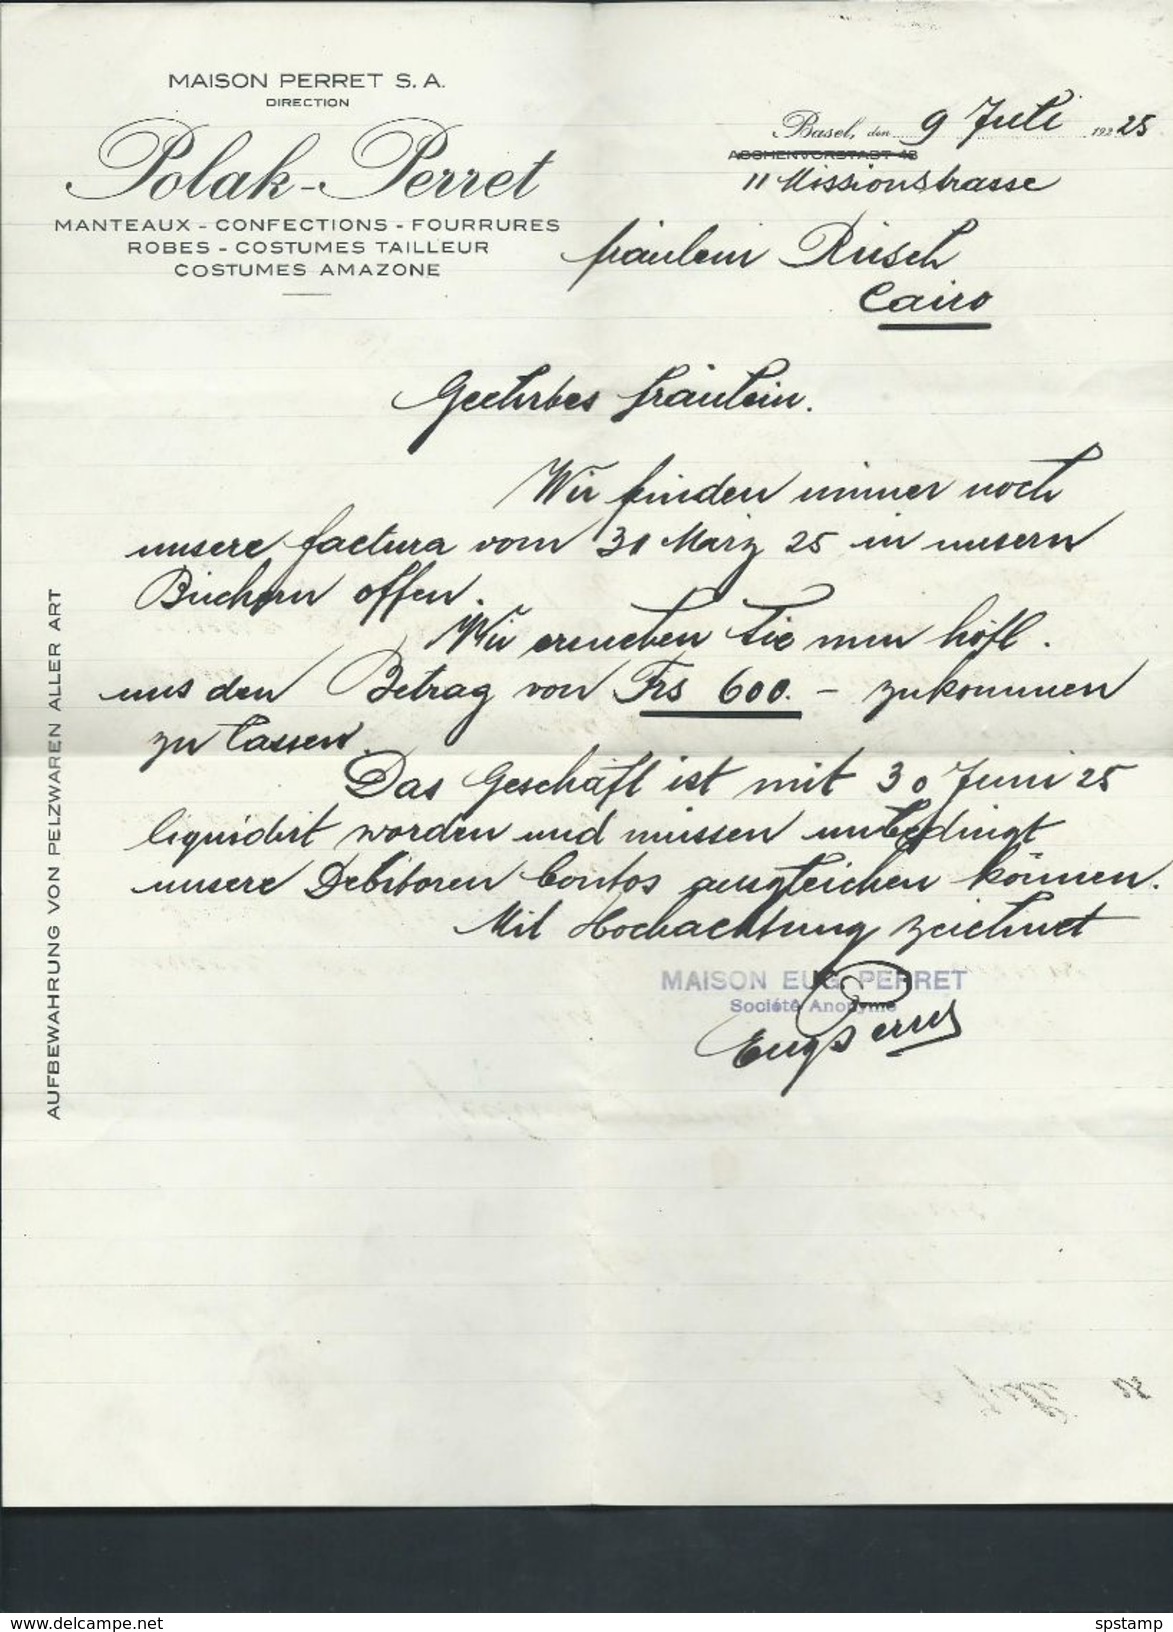 MAISON PERRET S. A.
DIRECTION
Polak-Perret
MANTEAUX - CONFECTIONS - FOURRURES
ROBES - COSTUMES TAILLEUR
COSTUMES AMAZONE
Basel, den 9 Juli 192 25
AESCHENVORSTADT 48
11 Missionstrasse
Fräulein Rüsch
Cairo
Geehrtes Fräulein.
Wir finden immer noch
unsere factura vom 30 März 25 in unsern
Büchern offen.
Wir ersuchen Sie nun höfl.
uns den Betrag von Frs 600.- zukommen
zu lassen.
Das Geschäft ist mit 30 Juni 25
liquidirt worden und müssen unbedingt
unsere Debitoren Contos ausgleichen können.
Mit Hochachtung zeichnet
MAISON EUG. PERRET
Société Anonyme
Eug Perret
AUFBEWAHRUNG VON PELZWAREN ALLER ART
www.delcampe.net
spstamp